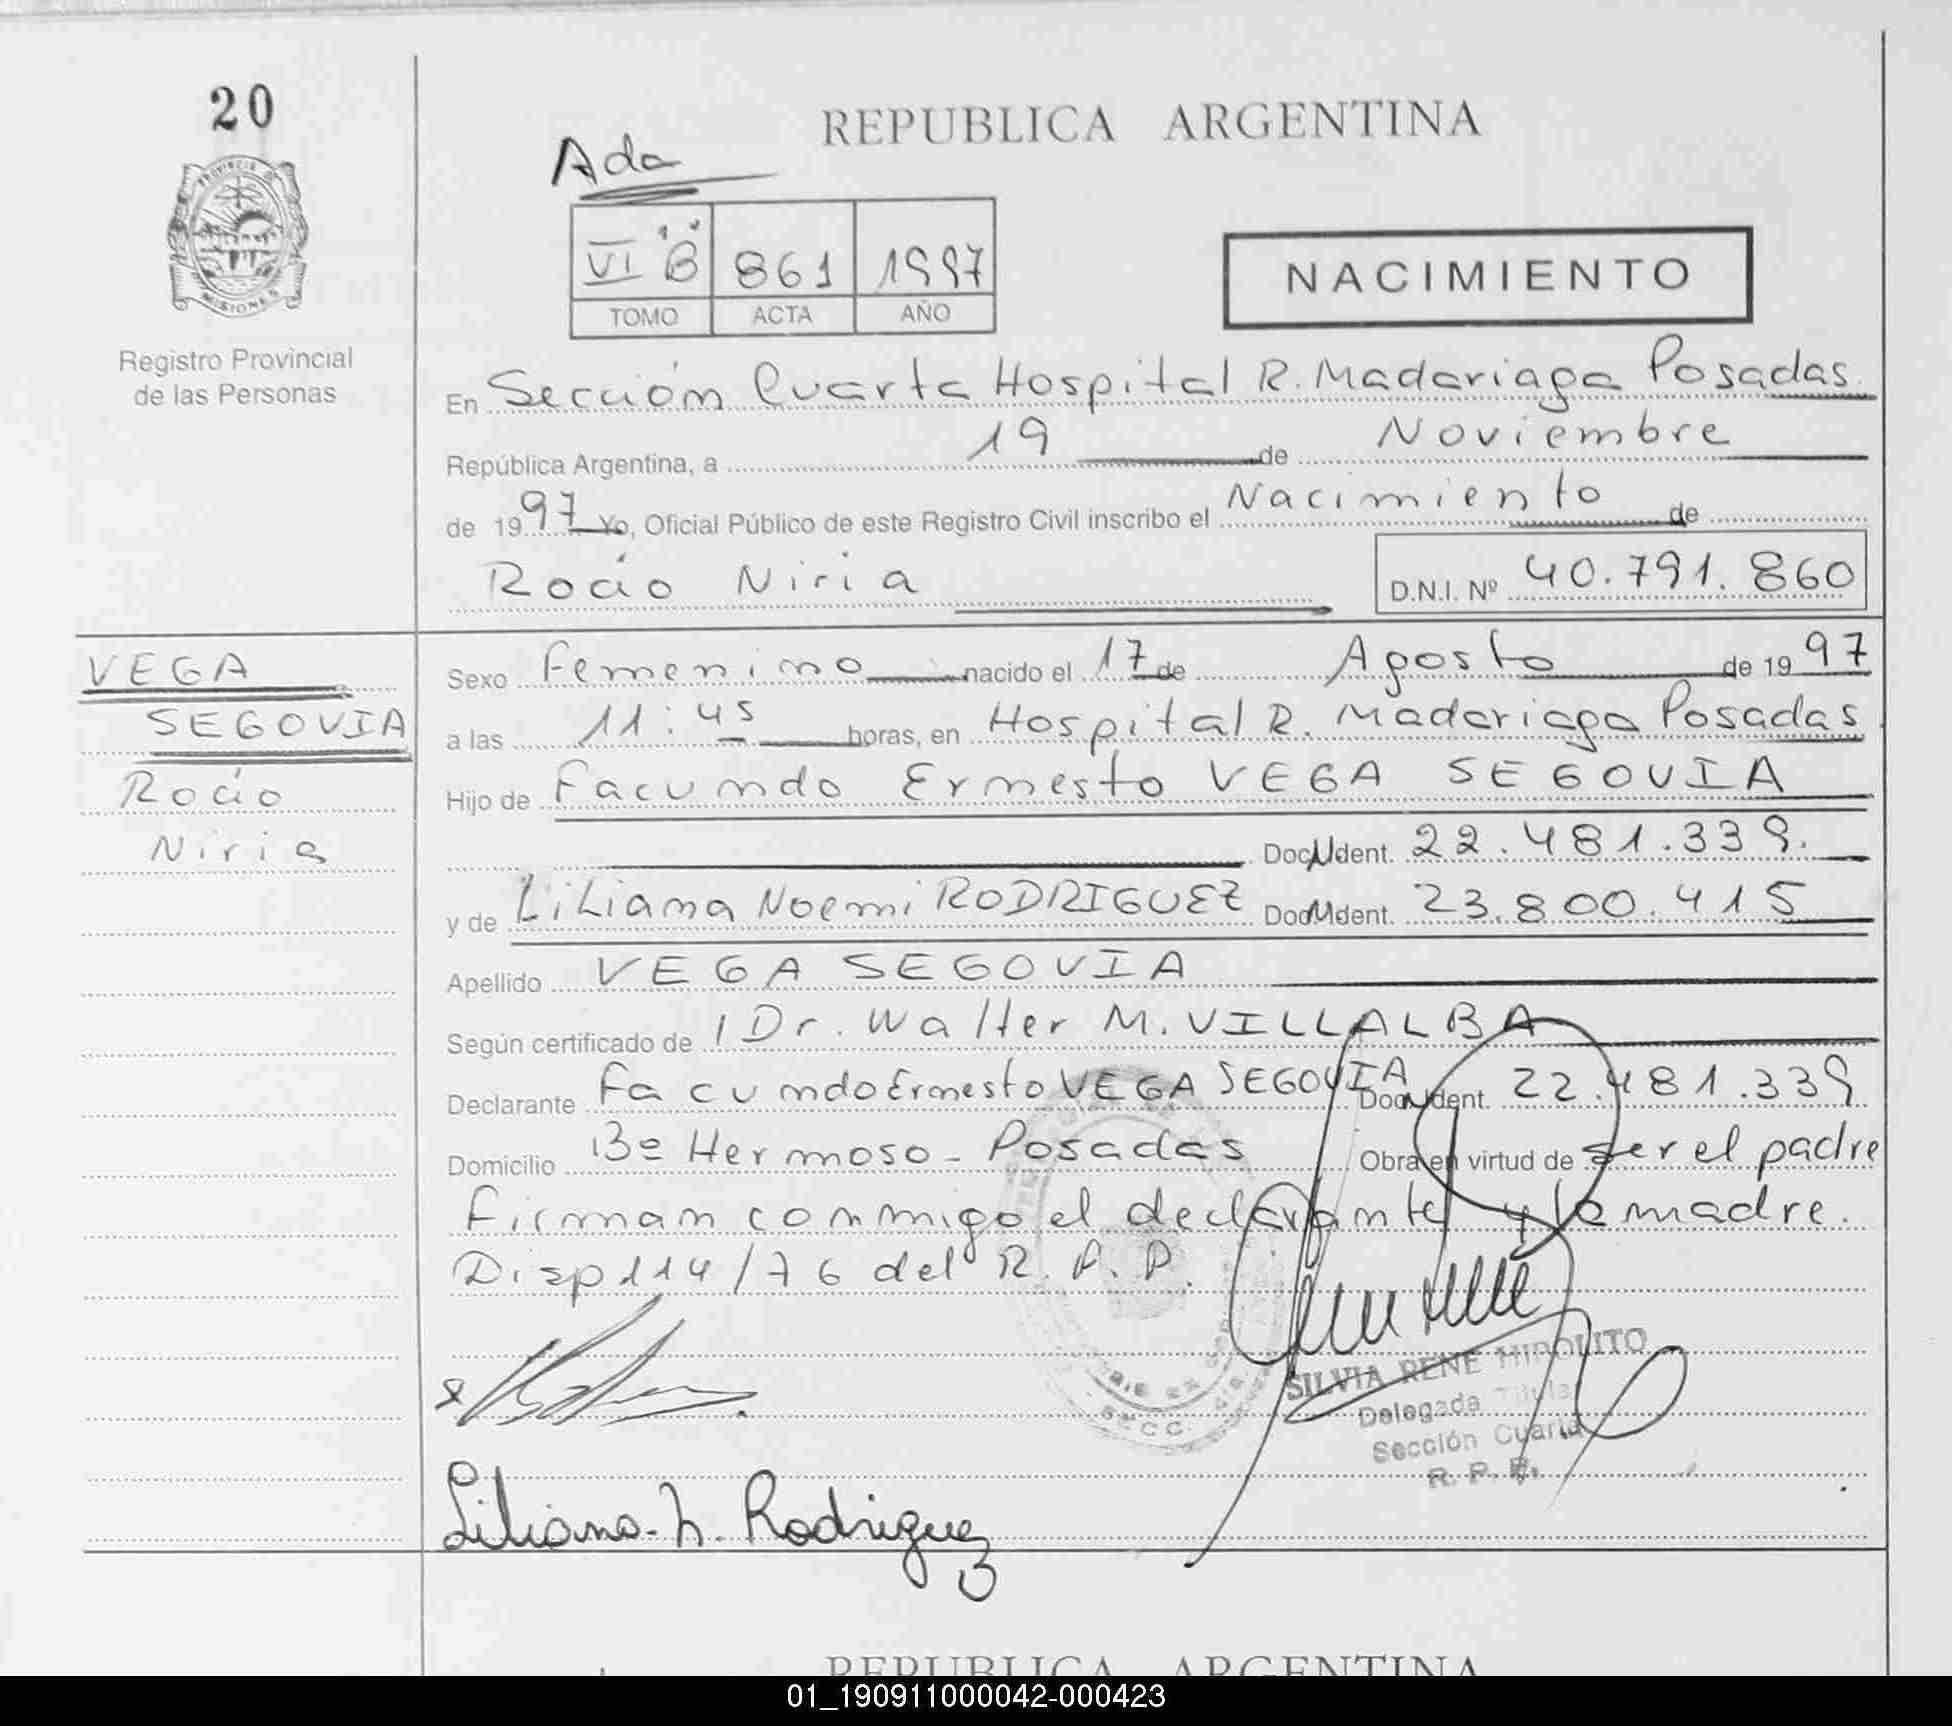 20
REPUBLICA ARGENTINA
Ada
PROVINCIA DE
MISIONES
VI "B" 861 1997
TOMO ACTA AÑO
NACIMIENTO
Registro Provincial
de las Personas
En Sección Cuarta Hospital R. Madariaga Posadas
República Argentina, a 19 de Noviembre
de 1997 Yo, Oficial Público de este Registro Civil inscribo el Nacimiento de
Rocío Niria D.N.I. Nº 40.791.860
VEGA
SEGOVIA
Rocío
Niria
Sexo Femenino nacido el 17 de Agosto de 1997
a las 11:45 horas, en Hospital R. Madariaga Posadas
Hijo de Facundo Ernesto VEGA SEGOVIA
Doc. Ident. 22.481.339.
y de Liliana Noemi RODRIGUEZ Doc. Ident. 23.800.415
Apellido VEGA SEGOVIA
Según certificado de Dr. Walter M. VILLALBA
Declarante Facundo Ernesto VEGA SEGOVIA Doc. Ident. 22.481.339
Domicilio Bº Hermoso - Posadas Obra en virtud de ser el padre
Firman conmigo el declarante y la madre.
Disp 114/76 del R. P. P.
SILVIA RENE HIPOLITO
Delegada Titular
Sección Cuarta
R. P. P.
Liliana N. Rodriguez
REPUBLICA ARGENTINA
01_190911000042-000423